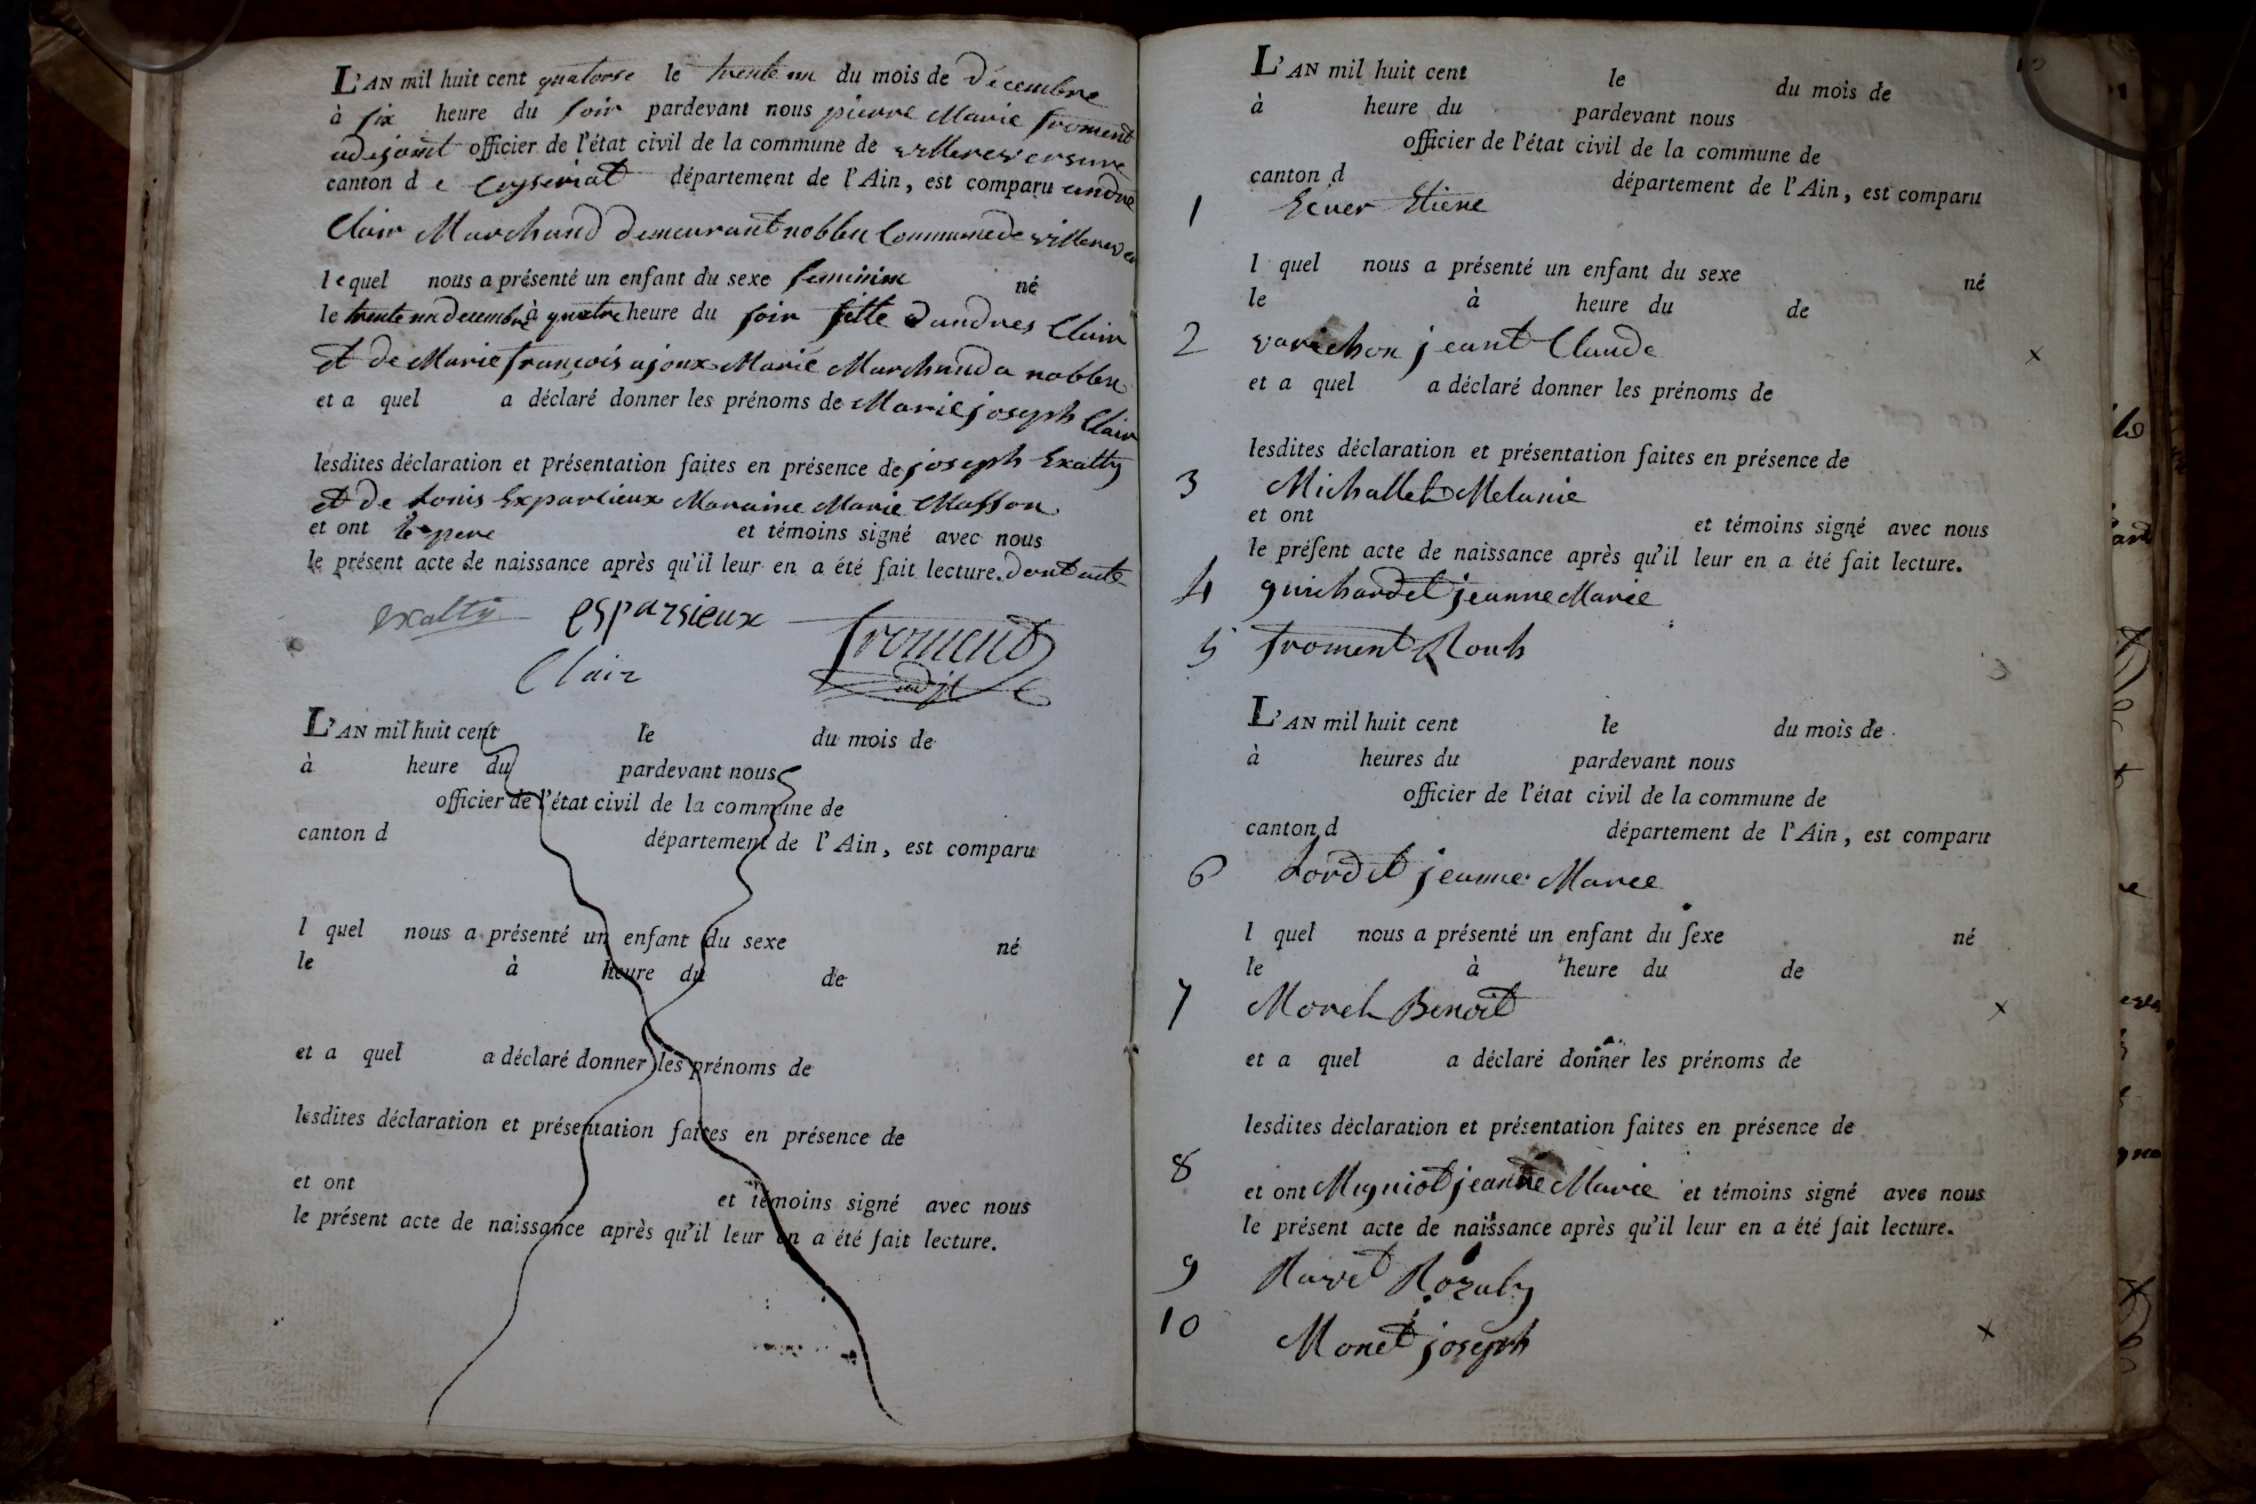 L'AN mil huit cent quatorse le trente un du mois de décembre
à six heure du soir pardevant nous pierre Marie froment
adejoint officier de l'état civil de la commune de villereversure
canton d e Ceyseriat département de l'Ain, est comparu andre
Clair Marchand demeurant nobleu Commune de villerever
lequel nous a présenté un enfant du sexe feminime né
le trente un decembre à quatre heure du soir fille dandres Clair
et de Marie françois ajoux Marié Marchand a nobleu
et a quel a déclaré donner les prénoms de Marie joseph Clair
lesdites déclaration et présentation faites en présence de joseph Exalty
et de Louis Exparcieux Maraine Marie Masson
et ont le pere et témoins signé avec nous
le présent acte de naissance après qu'il leur en a été fait lecture. dont acte
exalty esparsieux froment
Clair adjt
L'AN mil huit cent le du mois de
à heure du pardevant nous
officier de l'état civil de la commune de
canton d département de l'Ain, est comparu
l quel nous a présenté un enfant du sexe né
le à heure du de
et a quel a déclaré donner les prénoms de
lesdites déclaration et présentation faites en présence de
et ont et témoins signé avec nous
le présent acte de naissance après qu'il leur en a été fait lecture.
L'AN mil huit cent le du mois de
à heure du pardevant nous
officier de l'état civil de la commune de
canton d département de l'Ain, est comparu
1 Ecuer Etiene
l quel nous a présenté un enfant du sexe né
le à heure du de
2 varichon jeant Claude x
et a quel a déclaré donner les prénoms de
lesdites déclaration et présentation faites en présence de
3 Michallet Melanie
et ont et témoins signé avec nous
le préſent acte de naissance après qu'il leur en a été fait lecture.
4 guichardet jeanne Marie
5 froment Rouh
L'AN mil huit cent le du mois de
à heures du pardevant nous
officier de l'état civil de la commune de
canton d département de l'Ain, est comparu
6 Lordet jeanne Marie
l quel nous a présenté un enfant du ſexe né
le à heure du de
7 Morel Benoit x
et a quel a déclaré donner les prénoms de
lesdites déclaration et présentation faites en présence de
8 et ont Migniot jeanne Marie et témoins signé avec nous
le présent acte de naissance après qu'il leur en a été fait lecture.
9 Ravet Rozaly
10 Monet joseph x